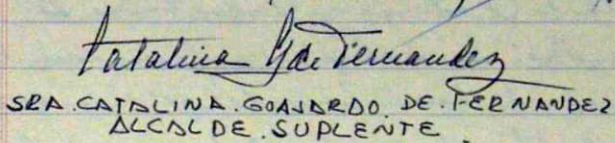 Catalina G de Fernandez
SRA. CATALINA. GOAJARDO. DE. FERNANDEZ
ALCALDE. SUPLENTE